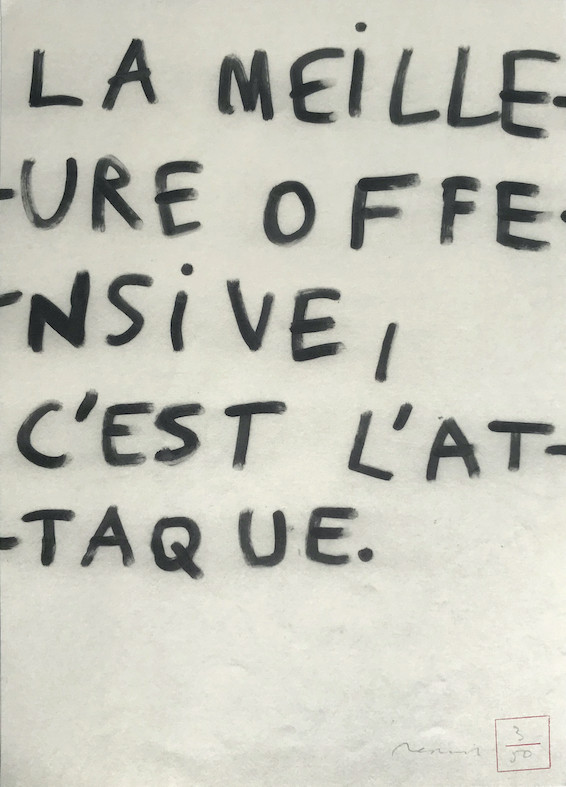 LA MEiLLE-
-URE OFFE-
-NSiVE,
C'EST L'AT-
-TAQUE.
3
50